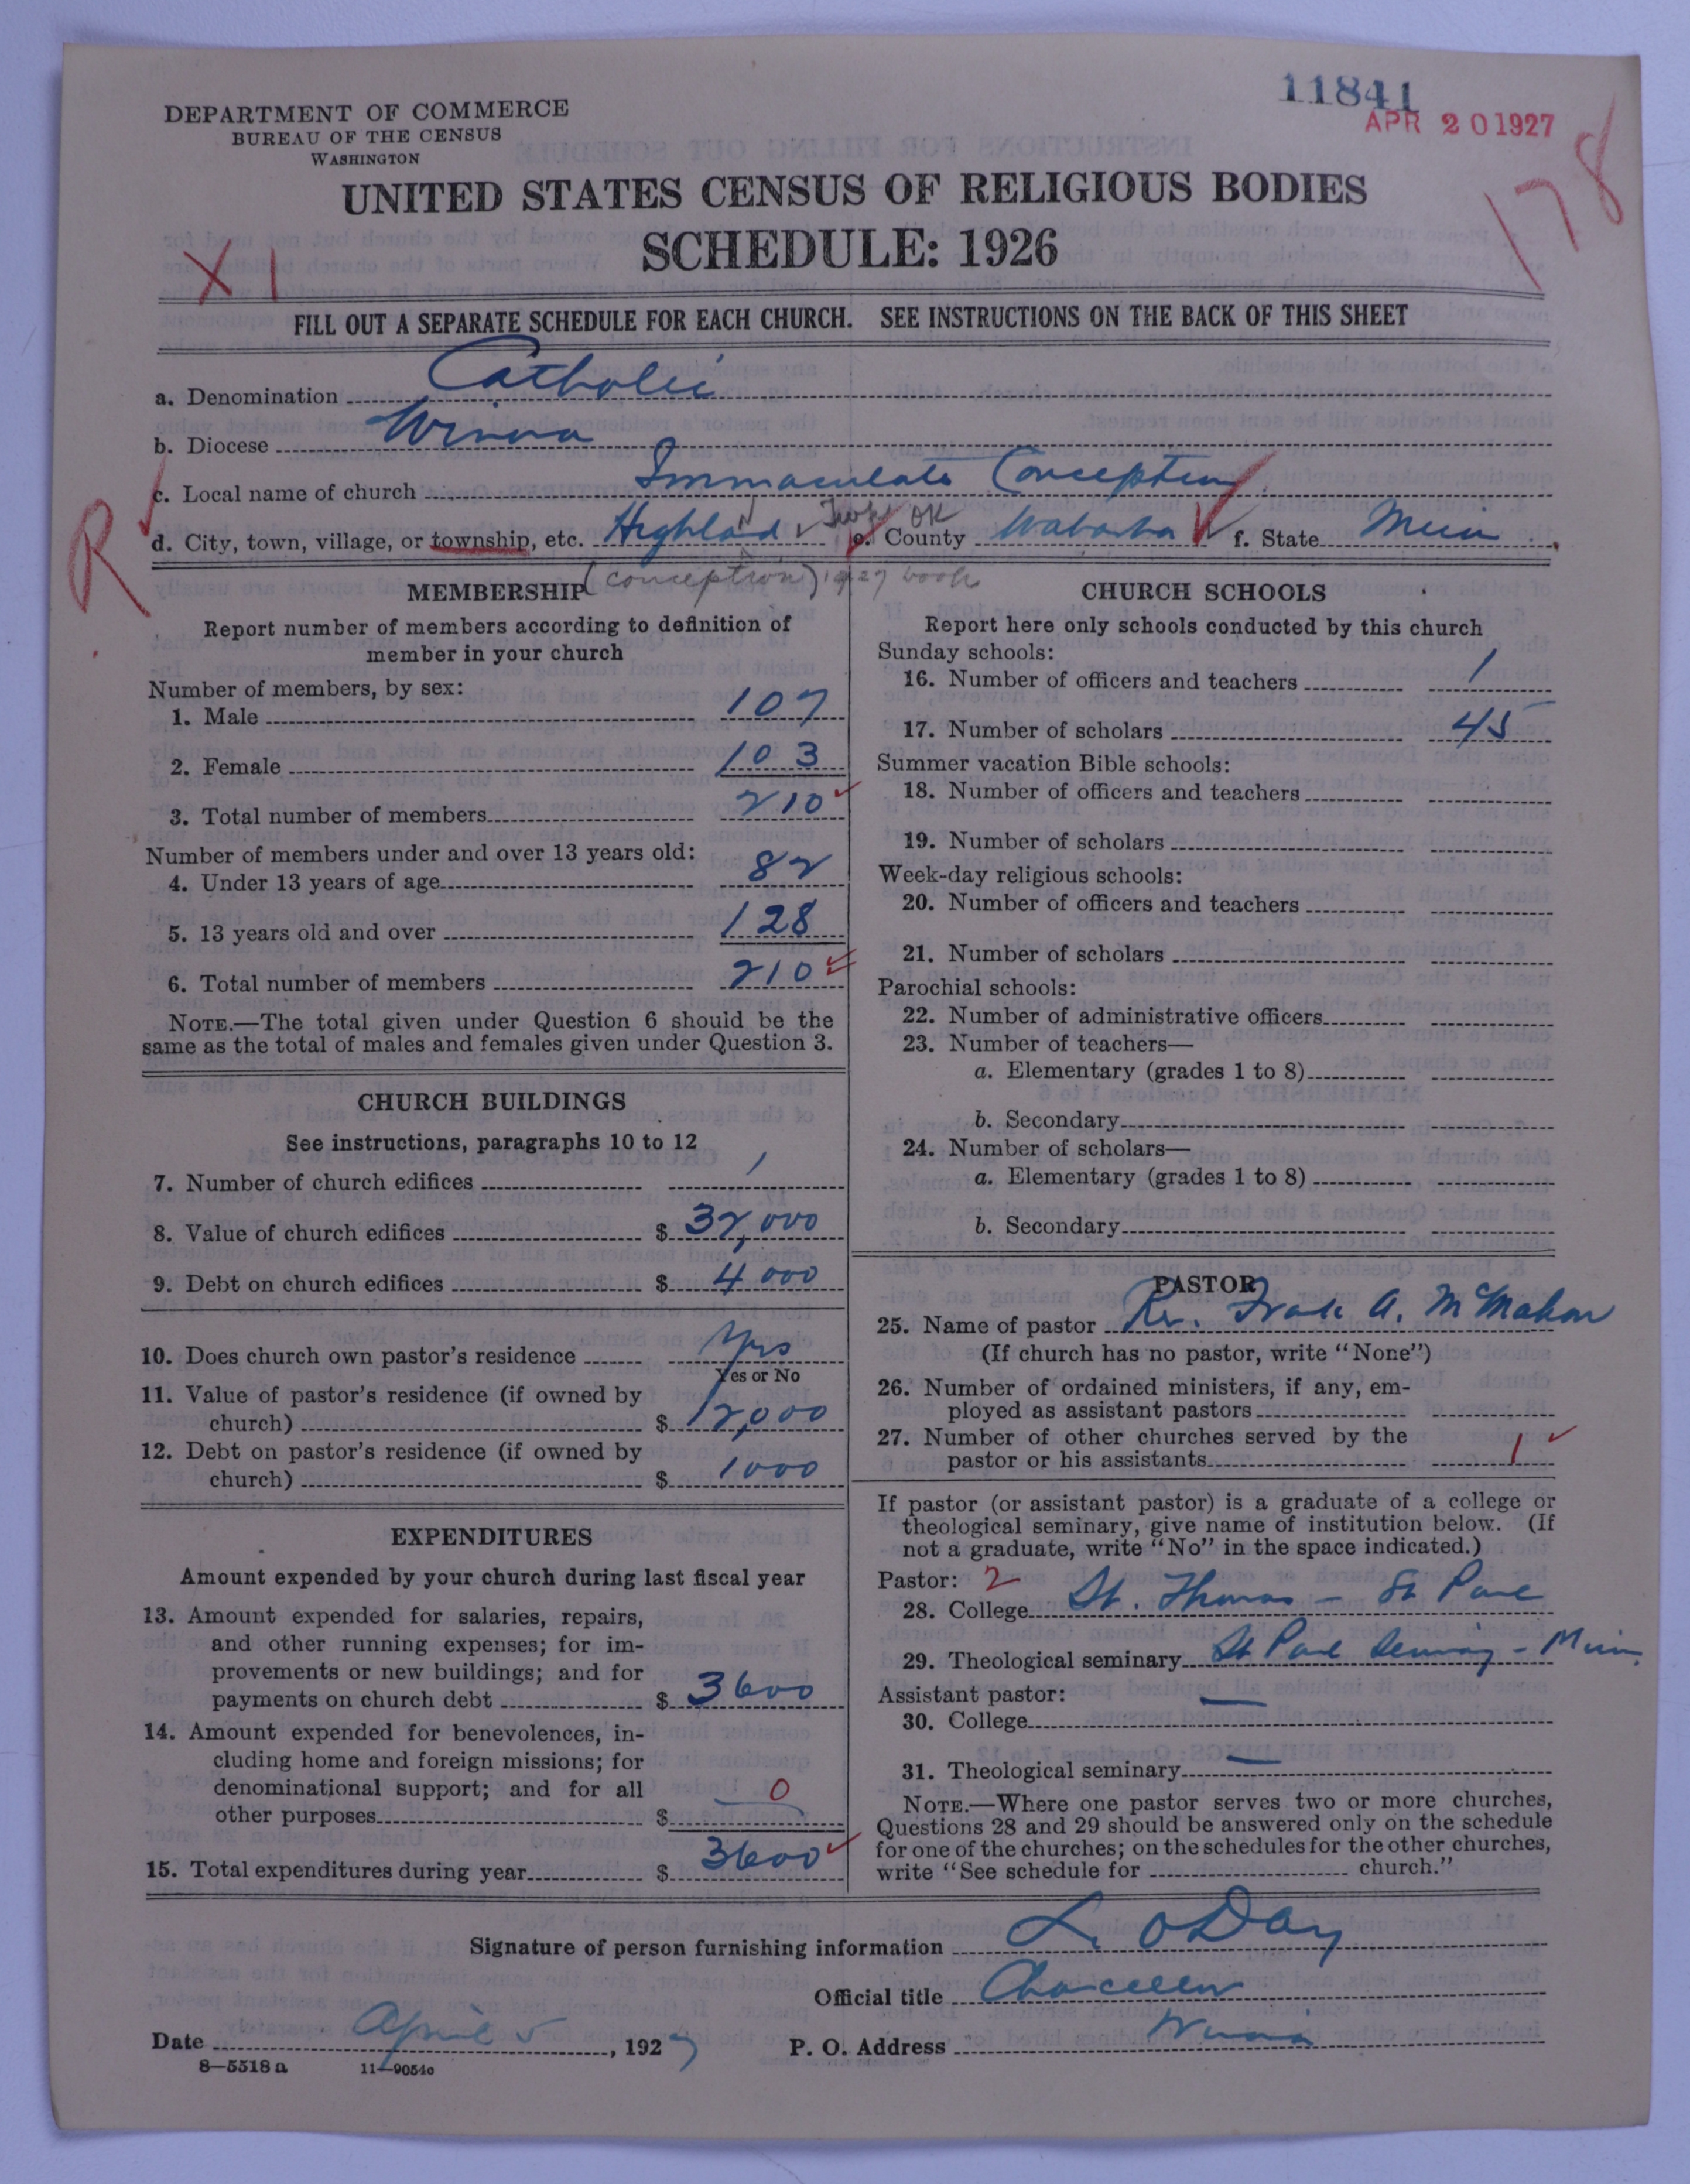 11841
APR 20 1927
178
DEPARTMENT OF COMMERCE
BUREAU OF THE CENSUS
WASHINGTON
UNITED STATES CENSUS OF RELIGIOUS BODIES
SCHEDULE: 1926
XI
FILL OUT A SEPARATE SCHEDULE FOR EACH CHURCH. SEE INSTRUCTIONS ON THE BACK OF THIS SHEET
a. Denomination Catholic
b. Diocese Winona
c. Local name of church Immaculate Conception
R
d. City, town, village, or township, etc. Highland Twp. OK e. County Wabasha f. State Minn
(conception) 1927 book
MEMBERSHIP
Report number of members according to definition of
member in your church
Number of members, by sex:
1. Male 107
2. Female 103
3. Total number of members 210
Number of members under and over 13 years old:
4. Under 13 years of age 82
5. 13 years old and over 128
6. Total number of members 210
NOTE.—The total given under Question 6 should be the
same as the total of males and females given under Question 3.
CHURCH BUILDINGS
See instructions, paragraphs 10 to 12
7. Number of church edifices 1
8. Value of church edifices $ 32,000
9. Debt on church edifices $ 4000
10. Does church own pastor's residence Yes
Yes or No
11. Value of pastor's residence (if owned by
church) $ 12,000
12. Debt on pastor's residence (if owned by
church) $ 1000
EXPENDITURES
Amount expended by your church during last fiscal year
13. Amount expended for salaries, repairs,
and other running expenses; for im-
provements or new buildings; and for
payments on church debt $ 3600
14. Amount expended for benevolences, in-
cluding home and foreign missions; for
denominational support; and for all
other purposes $ 0
15. Total expenditures during year $ 3600
CHURCH SCHOOLS
Report here only schools conducted by this church
Sunday schools:
16. Number of officers and teachers 1
17. Number of scholars 45
Summer vacation Bible schools:
18. Number of officers and teachers
19. Number of scholars
Week-day religious schools:
20. Number of officers and teachers
21. Number of scholars
Parochial schools:
22. Number of administrative officers
23. Number of teachers—
a. Elementary (grades 1 to 8)
b. Secondary
24. Number of scholars—
a. Elementary (grades 1 to 8)
b. Secondary
PASTOR
25. Name of pastor Rev. Frank A. McMahon
(If church has no pastor, write "None")
26. Number of ordained ministers, if any, em-
ployed as assistant pastors
27. Number of other churches served by the
pastor or his assistants 1
If pastor (or assistant pastor) is a graduate of a college or
theological seminary, give name of institution below. (If
not a graduate, write "No" in the space indicated.)
Pastor: 2
28. College St. Thomas - St Paul
29. Theological seminary St Paul Seminary - Minn.
Assistant pastor:
30. College —
31. Theological seminary —
NOTE.—Where one pastor serves two or more churches,
Questions 28 and 29 should be answered only on the schedule
for one of the churches; on the schedules for the other churches,
write "See schedule for church."
Signature of person furnishing information L. O Day
Official title Chancellor
Date April 5, 1927
P. O. Address Winona
8—5518 a 11—9054c